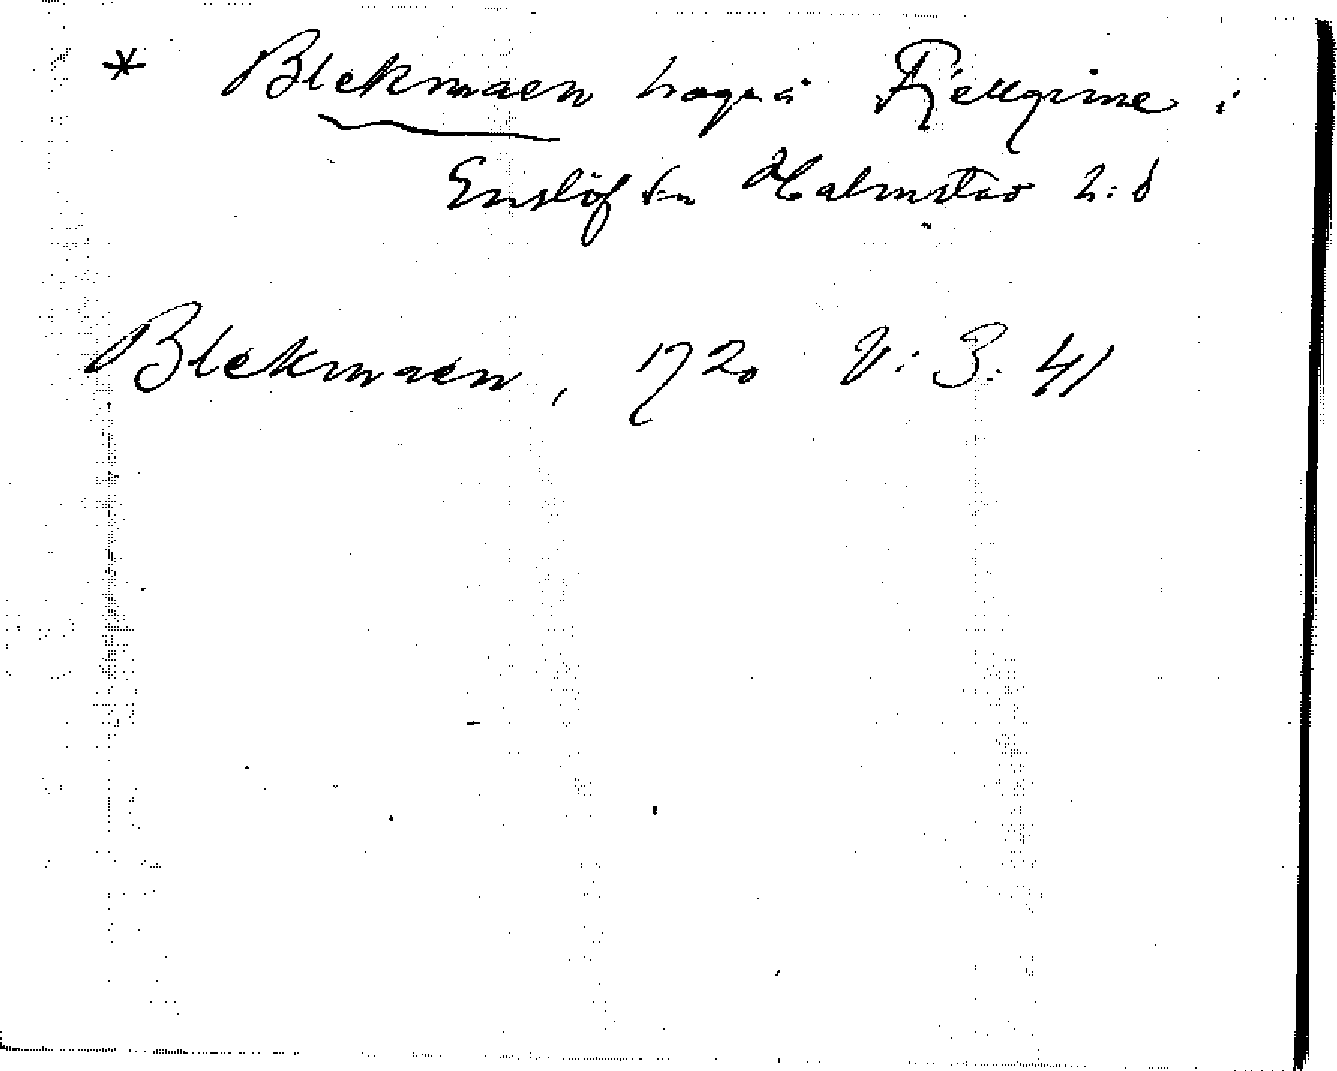 * Blekmaen på Fjellgrine i
Enslöf sn Halmstad h:d
Blekmaen, 1720 V: 3: 41